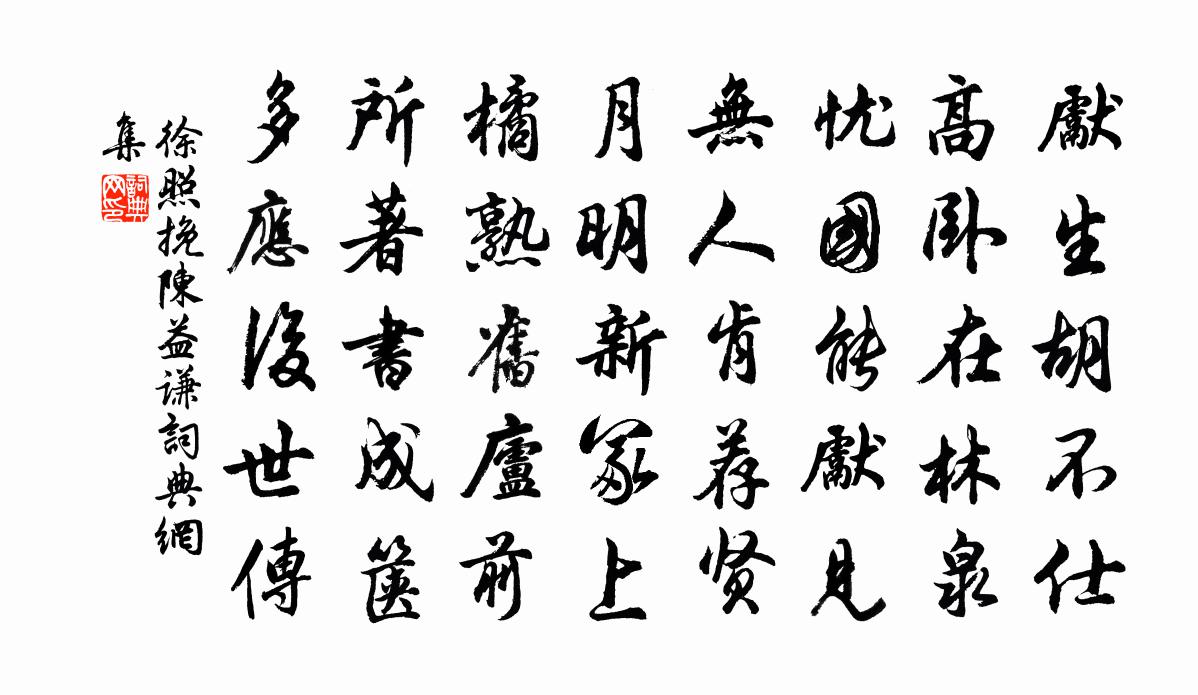 獻生胡不仕
高卧在林泉
忧國能獻見
無人肯荐贤
月明新冢上
橘熟舊廬前
所著書成箧
多應後世傳
徐照挽陳益谦詞典網
集
詞典
网印